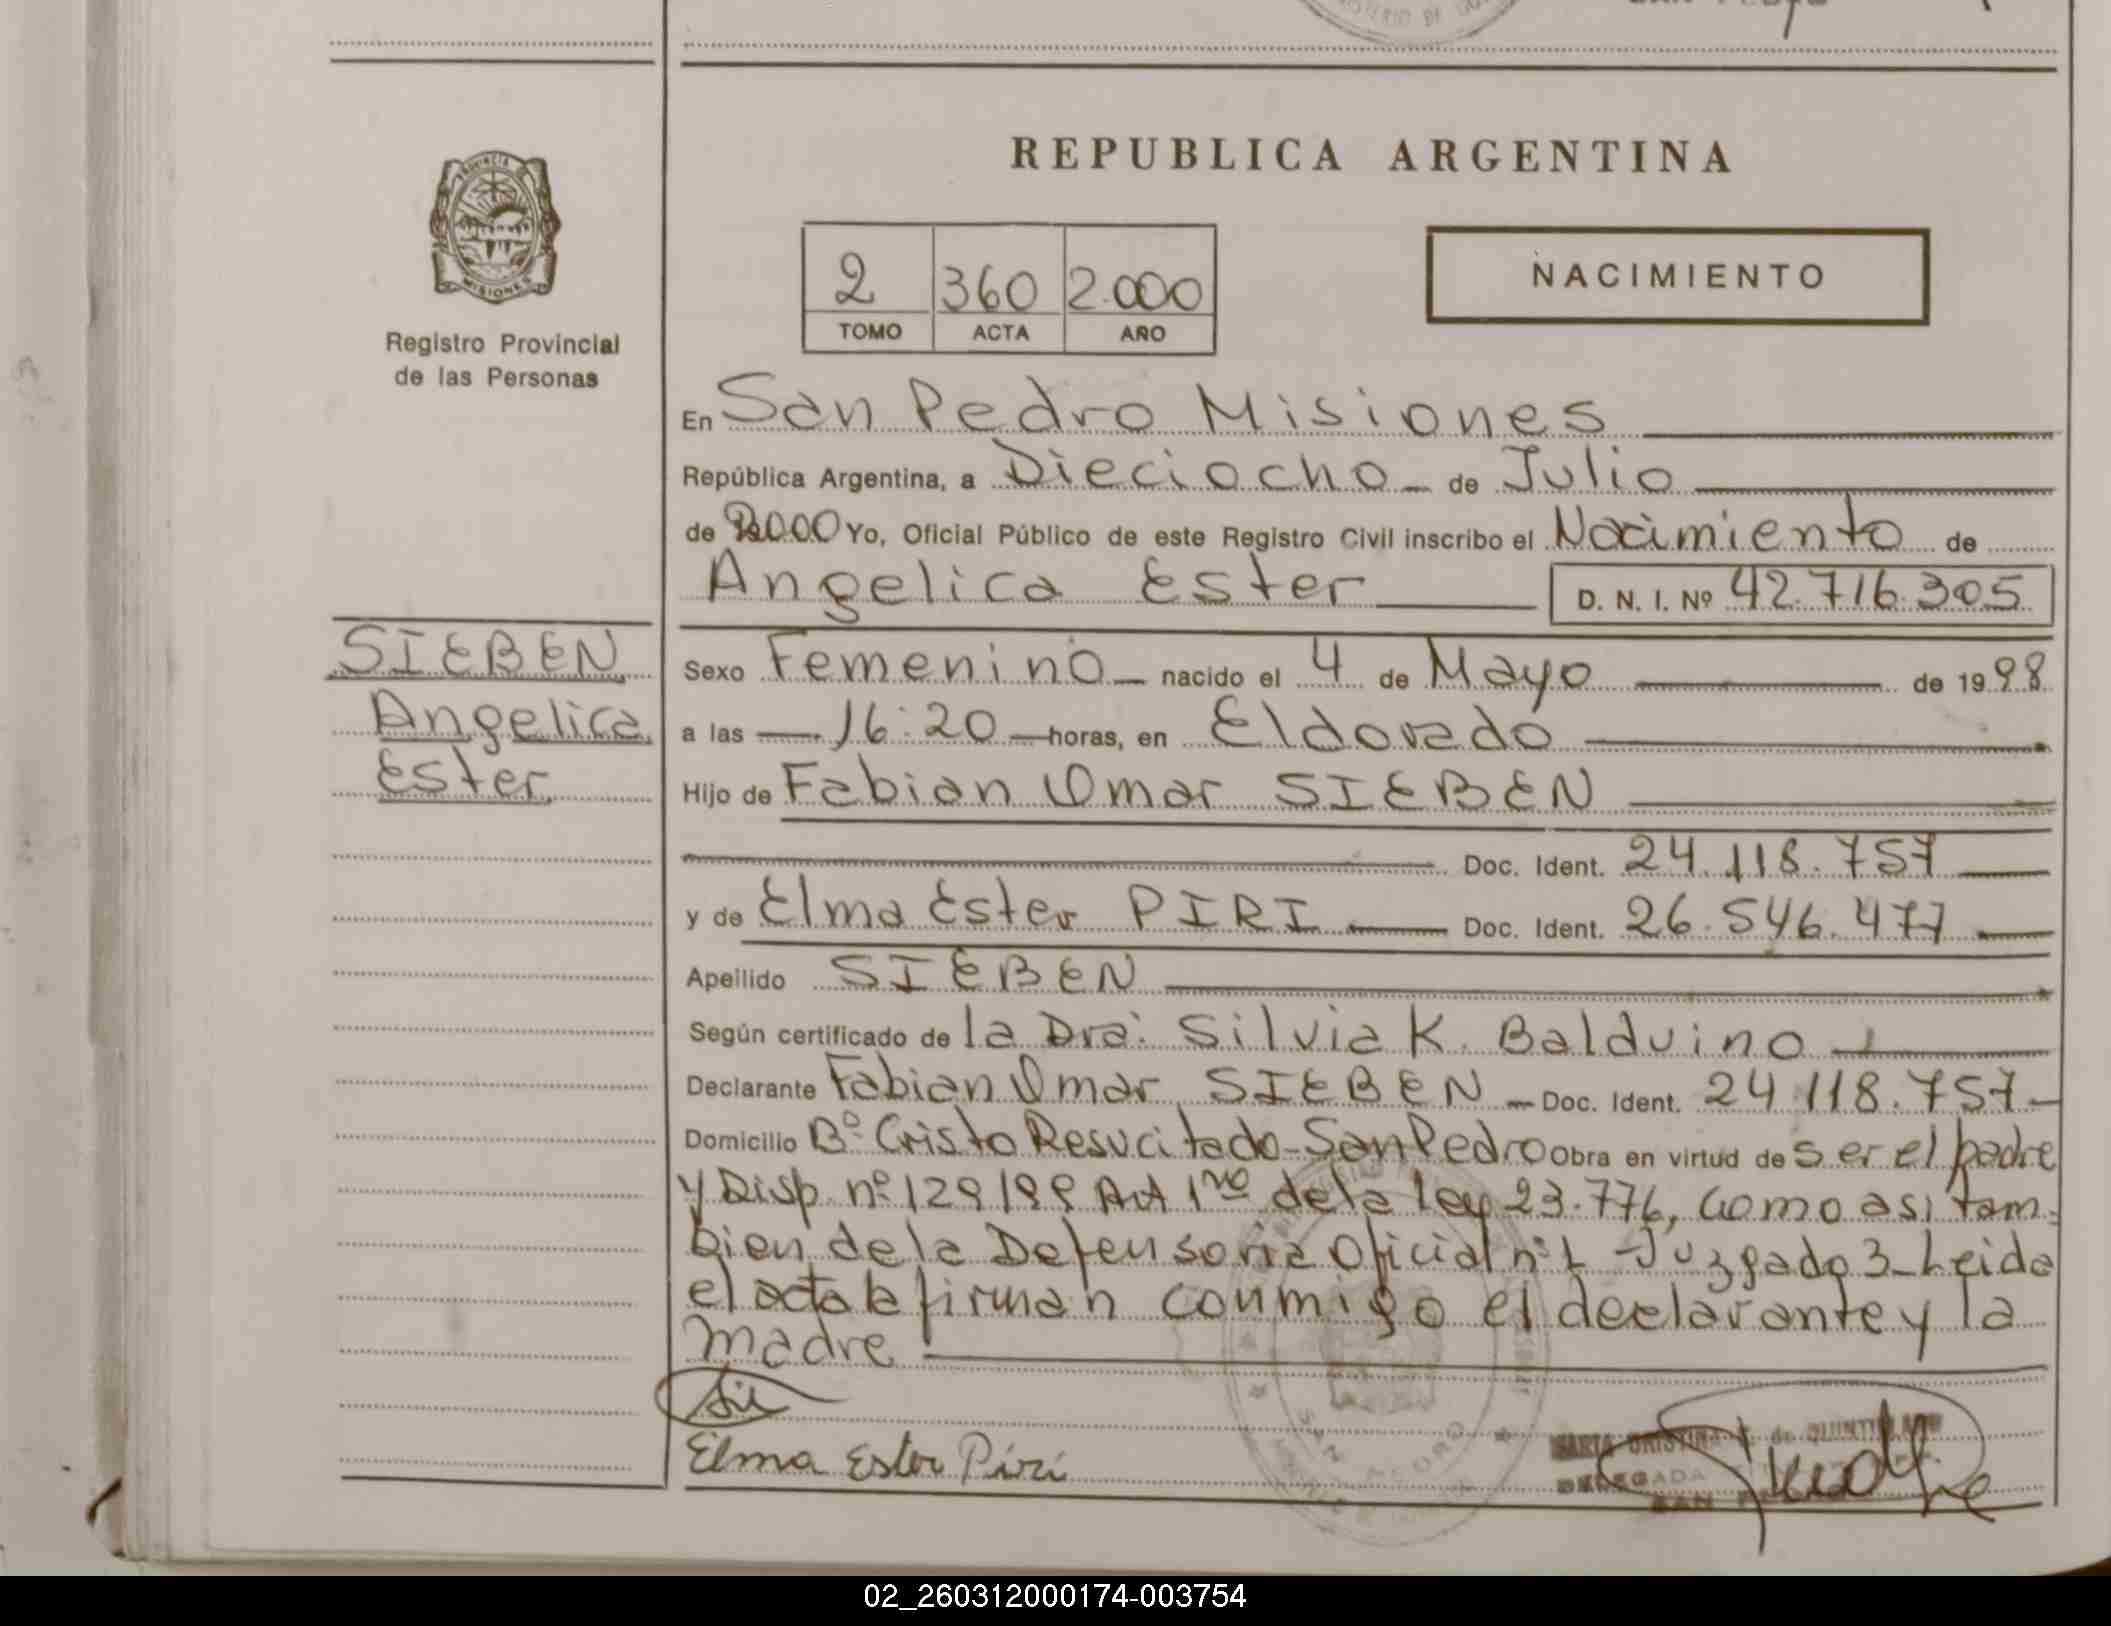 REPUBLICA ARGENTINA
PROVINCIA
MISIONES
Registro Provincial
de las Personas
2 360 2.000
TOMO ACTA AÑO
NACIMIENTO
En San Pedro Misiones
República Argentina, a Dieciocho de Julio
de 2000 Yo, Oficial Público de este Registro Civil inscribo el Nacimiento de
Angelica Ester D. N. I. Nº 42.716.305
SIEBEN
Angelica
Ester
Sexo Femenino nacido el 4 de Mayo de 1998
a las 16:20 horas, en Eldorado
Hijo de Fabian Omar SIEBEN
Doc. Ident. 24.118.757
y de Elma Ester PIRI Doc. Ident. 26.546.477
Apellido SIEBEN
Según certificado de la Dra: Silvia K. Balduino
Declarante Fabian Omar SIEBEN - Doc. Ident. 24 118.757-
Domicilio Bº Cristo Resucitado-San Pedro obra en virtud de ser el padre
y Disp. nº 129/99 Art 1ro de la ley 23.776, como asi tam-
bien de la Defensoria Oficial nº1 - Juzgado 3_Leida
el acta la firman conmigo el declarante y la
madre
Elma Ester Piri
SAN PEDRO
MARIA CRISTINA de
DELEGADA
SAN
02_260312000174-003754